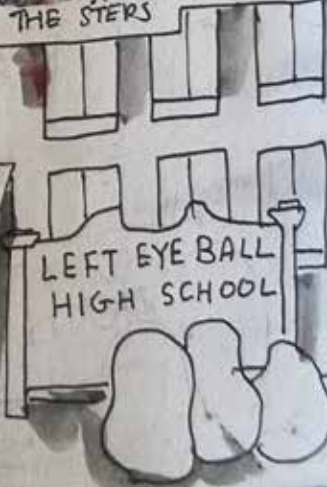 THE STERS
LEFT EYE BALL
HIGH SCHOOL